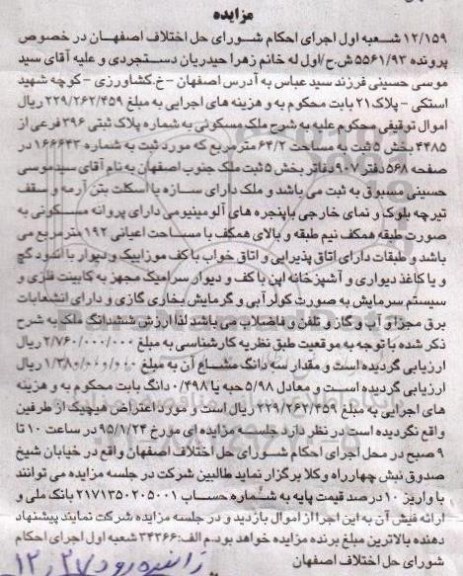 مزایده
۱۲/۱۵۹ شعبه اول اجرای احکام شورای حل اختلاف اصفهان در خصوص
پرونده ۵۵۶۱/۹۳ ش.ح/اول له خانم زهرا حیدریان دستجردی و علیه آقای سید
موسی حسینی فرزند سید عباس به آدرس اصفهان - خ.کشاورزی - کوچه شهید
استکی - پلاک ۲۱ بابت محکوم به و هزینه های اجرایی به مبلغ ۲۲۹/۲۶۲/۴۵۹ ریال
اموال توقیفی محکوم علیه به شرح ملک مسکونی به شماره پلاک ثبتی ۳۹۶ فرعی از
۴۴۸۵ بخش ۵ ثبت به مساحت ۶۴/۲ متر مربع که مورد ثبت به شماره ۱۶۶۶۴۳ در
صفحه ۵۶۸ دفتر ۹۰۷ دفاتر بخش ۵ ثبت ملک جنوب اصفهان به نام آقای سید موسی
حسینی مسبوق به ثبت می باشد و ملک دارای سازه با اسکلت بتن آرمه و سقف
تیرچه بلوک و نمای خارجی با پنجره های آلومینیومی دارای پروانه مسکونی به
صورت طبقه همکف نیم طبقه و بالای همکف با مساحت اعیانی ۱۹۲ متر مربع می
باشد و طبقات دارای اتاق پذیرایی و اتاق خواب با کف موزاییک و دیوار با اندود گچ
و یا کاغذ دیواری و آشپزخانه اپن با کف و دیوار سرامیک مجهز به کابینت فلزی و
سیستم سرمایش به صورت کولر آبی و گرمایش بخاری گازی و دارای انشعابات
برق مجزا و آب و گاز و تلفن و فاضلاب می باشد لذا ارزش ششدانگ ملک به شرح
ذکر شده با توجه به موقعیت طبق نظریه کارشناسی به مبلغ ۲/۷۶۰/۰۰۰/۰۰۰ ریال
ارزیابی گردیده است و مقدار سه دانگ مشاع آن به مبلغ ۱/۳۸۰/۰۰۰/۰۰۰ ریال
ارزیابی گردیده است و معادل ۵/۹۸ حبه یا ۰/۴۹۸ دانگ بابت محکوم به و هزینه
های اجرایی به مبلغ ۲۲۹/۲۶۲/۴۵۹ ریال است و مورد اعتراض هیچیک از طرفین
واقع نگردیده است در نظر دارد جلسه مزایده ای مورخ ۹۵/۱/۲۴ در ساعت ۱۰ تا
۹ صبح در محل اجرای احکام شورای حل اختلاف اصفهان واقع در خیابان شیخ
صدوق نبش چهارراه وکلا برگزار نماید طالبین شرکت در جلسه مزایده می توانند
با واریز ۱۰ درصد قیمت پایه به شماره حساب ۲۱۷۱۳۵۰۲۰۵۰۰۱ بانک ملی و
ارائه فیش آن به این اجرا از اموال بازدید و در جلسه مزایده شرکت نمایند پیشنهاد
دهنده بالاترین مبلغ برنده مزایده خواهد بود.م الف:۳۴۳۶۶ شعبه اول اجرای احکام
شورای حل اختلاف اصفهان
زاینده رود ۱۲،۲۷